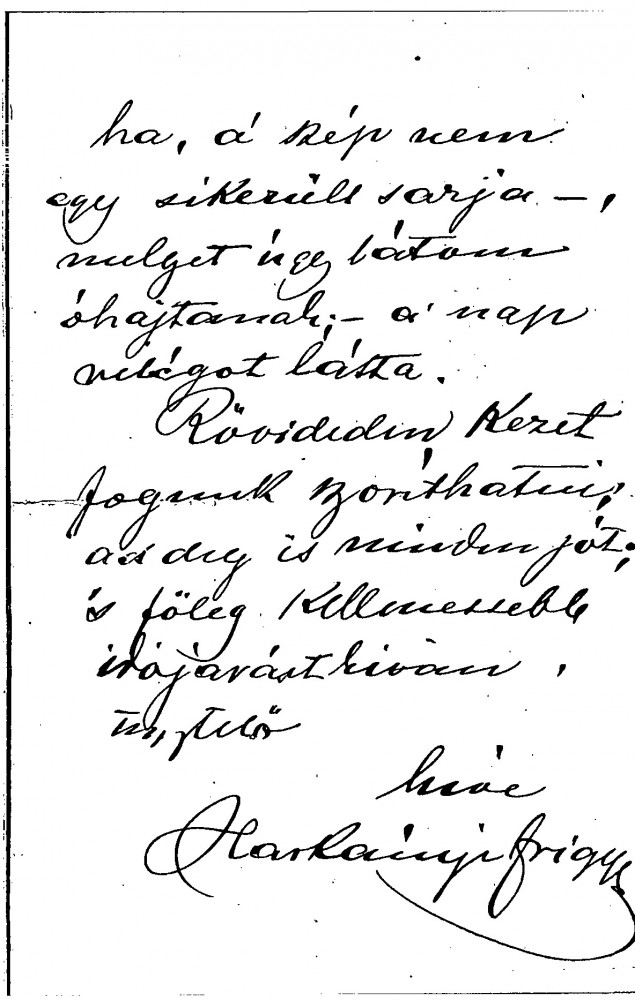 ha, a' kép nem
egy sikerült sarja –,
melyet úgy látom
óhajtanak; – a' nap
világot látta.
Rövideden kezet
fogunk szoríthatni;
addig is minden jót;
és főleg kellemessebb
időjárást kíván,
tisztelő
híve
Harkányi Frigyes